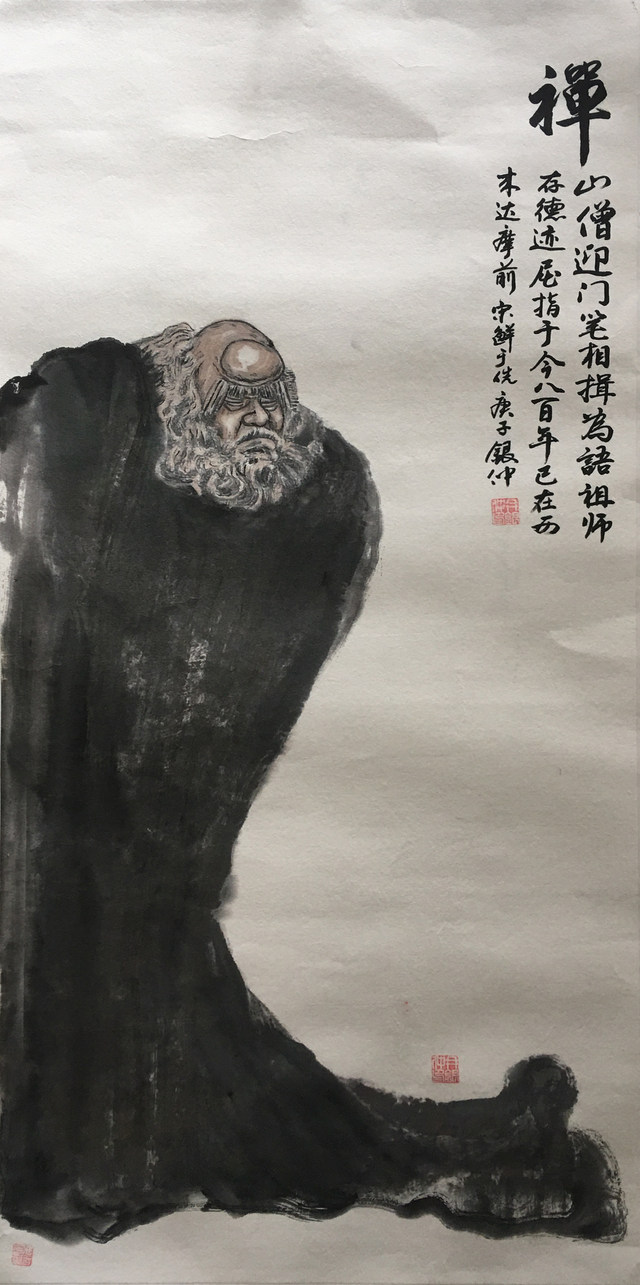 禪
山僧迎门笑相揖為語祖师
存德迹屈指于今八百年已在西
来达摩前 宋鲜于侁 庚子 銀仲